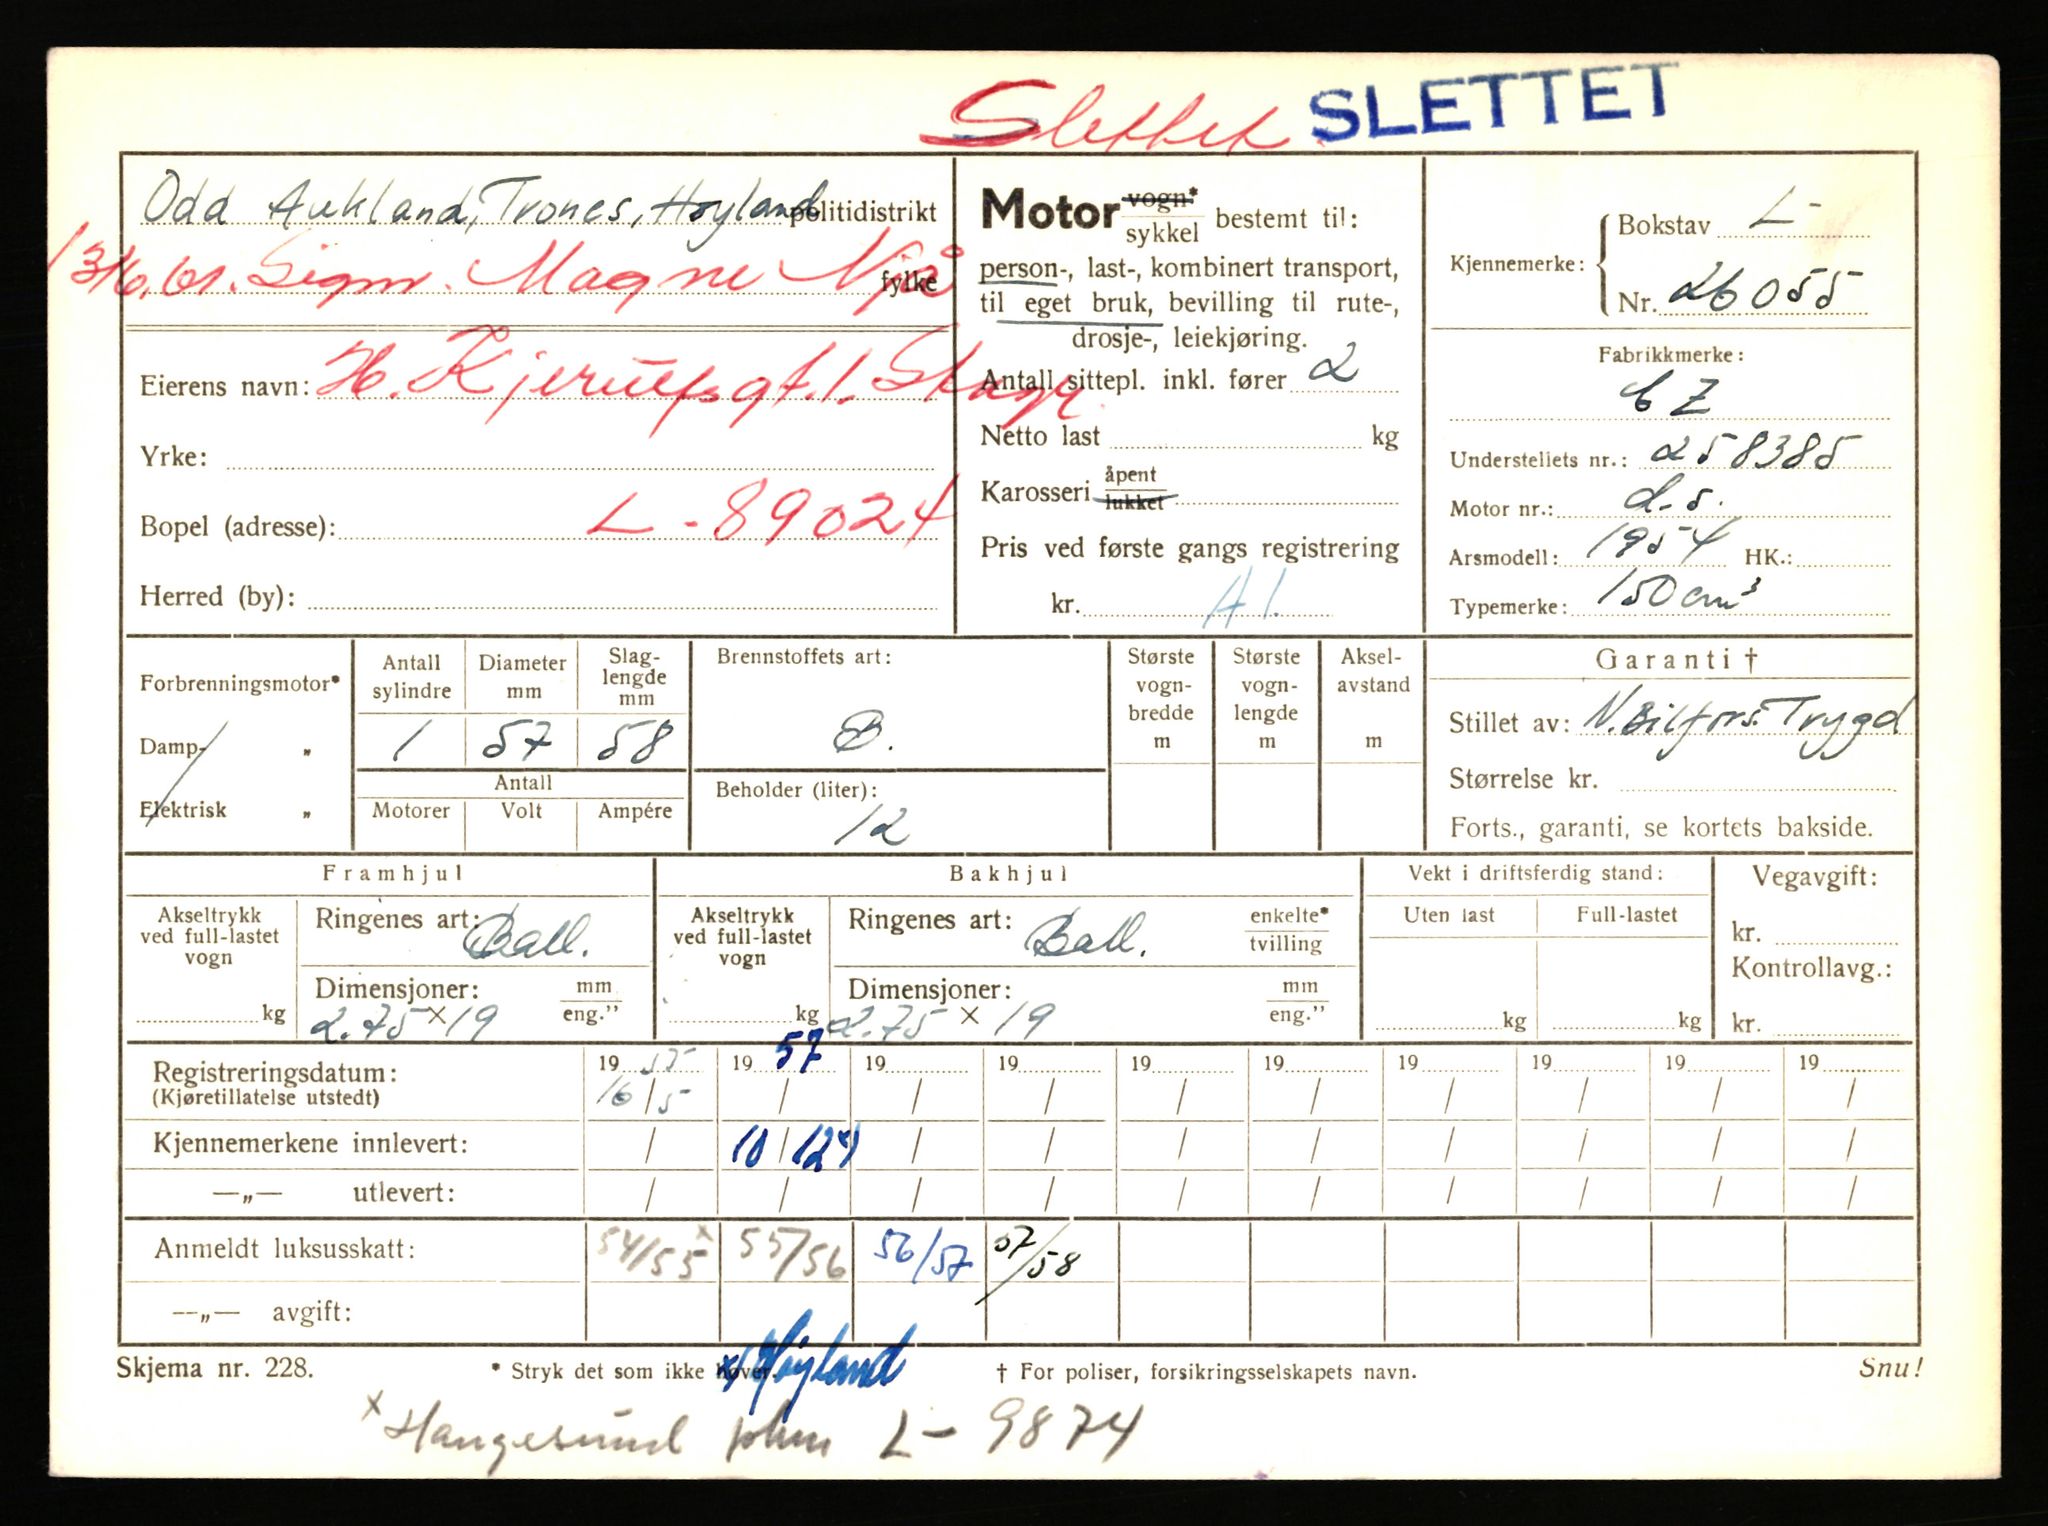 Slettet SLETTET
Odd Aukland, Trones, Høyland politidistrikt
13/6.61. Sigm. Magne Njå fylke
Eierens navn: H. Kjerulfsgt. 1. Stavgr.
Yrke:
Bopel (adresse): L - 89024
Herred (by):
Motor vogn* sykkel bestemt til:
person-, last-, kombinert transport,
til eget bruk, bevilling til rute-,
drosje-, leiekjøring.
Antall sittepl. inkl. fører 2
Netto last kg
Karosseri åpent lukket
Pris ved første gangs registrering
kr. A 1.
Kjennemerke: Bokstav L-
Nr. 26055
Fabrikkmerke:
CZ
Understellets nr.: 258385
Motor nr.: d.s.
Årsmodell: 1954 HK.:
Typemerke: 150 cm³
Forbrenningsmotor*
Damp- „
Elektrisk „
Antall sylindre Diameter mm Slag-lengde mm
1 57 58
Antall
Motorer Volt Ampére
Brennstoffets art:
B.
Beholder (liter):
12
Største vogn-bredde m
Største vogn-lengde m
Aksel-avstand m
Garanti †
Stillet av: N. Bilfors. Trygd
Størrelse kr.
Forts., garanti, se kortets bakside.
Framhjul
Akseltrykk ved full-lastet vogn kg
Ringenes art: Ball.
Dimensjoner: mm eng.”
2.75 x 19
Bakhjul
Akseltrykk ved full-lastet vogn kg
Ringenes art: Ball. enkelte* tvilling
Dimensjoner: mm eng.”
2.75 x 19
Vekt i driftsferdig stand:
Uten last Full-lastet
kg kg
Vegavgift:
kr.
Kontrollavg.:
kr.
Registreringsdatum: 19 55 19 57 19 19 19 19 19 19 19 19
(Kjøretillatelse utstedt) 16/5 / / / / / / / / /
Kjennemerkene innlevert: / 10/12 x) / / / / / / / /
—„— utlevert: / / / / / / / / / /
Anmeldt luksusskatt: 54/55 x 55/56 56/57 57/58
—„— avgift:
Skjema nr. 228. * Stryk det som ikke høver. x) Høyland † For poliser, forsikringsselskapets navn. Snu!
x Haugesund phm L- 9874